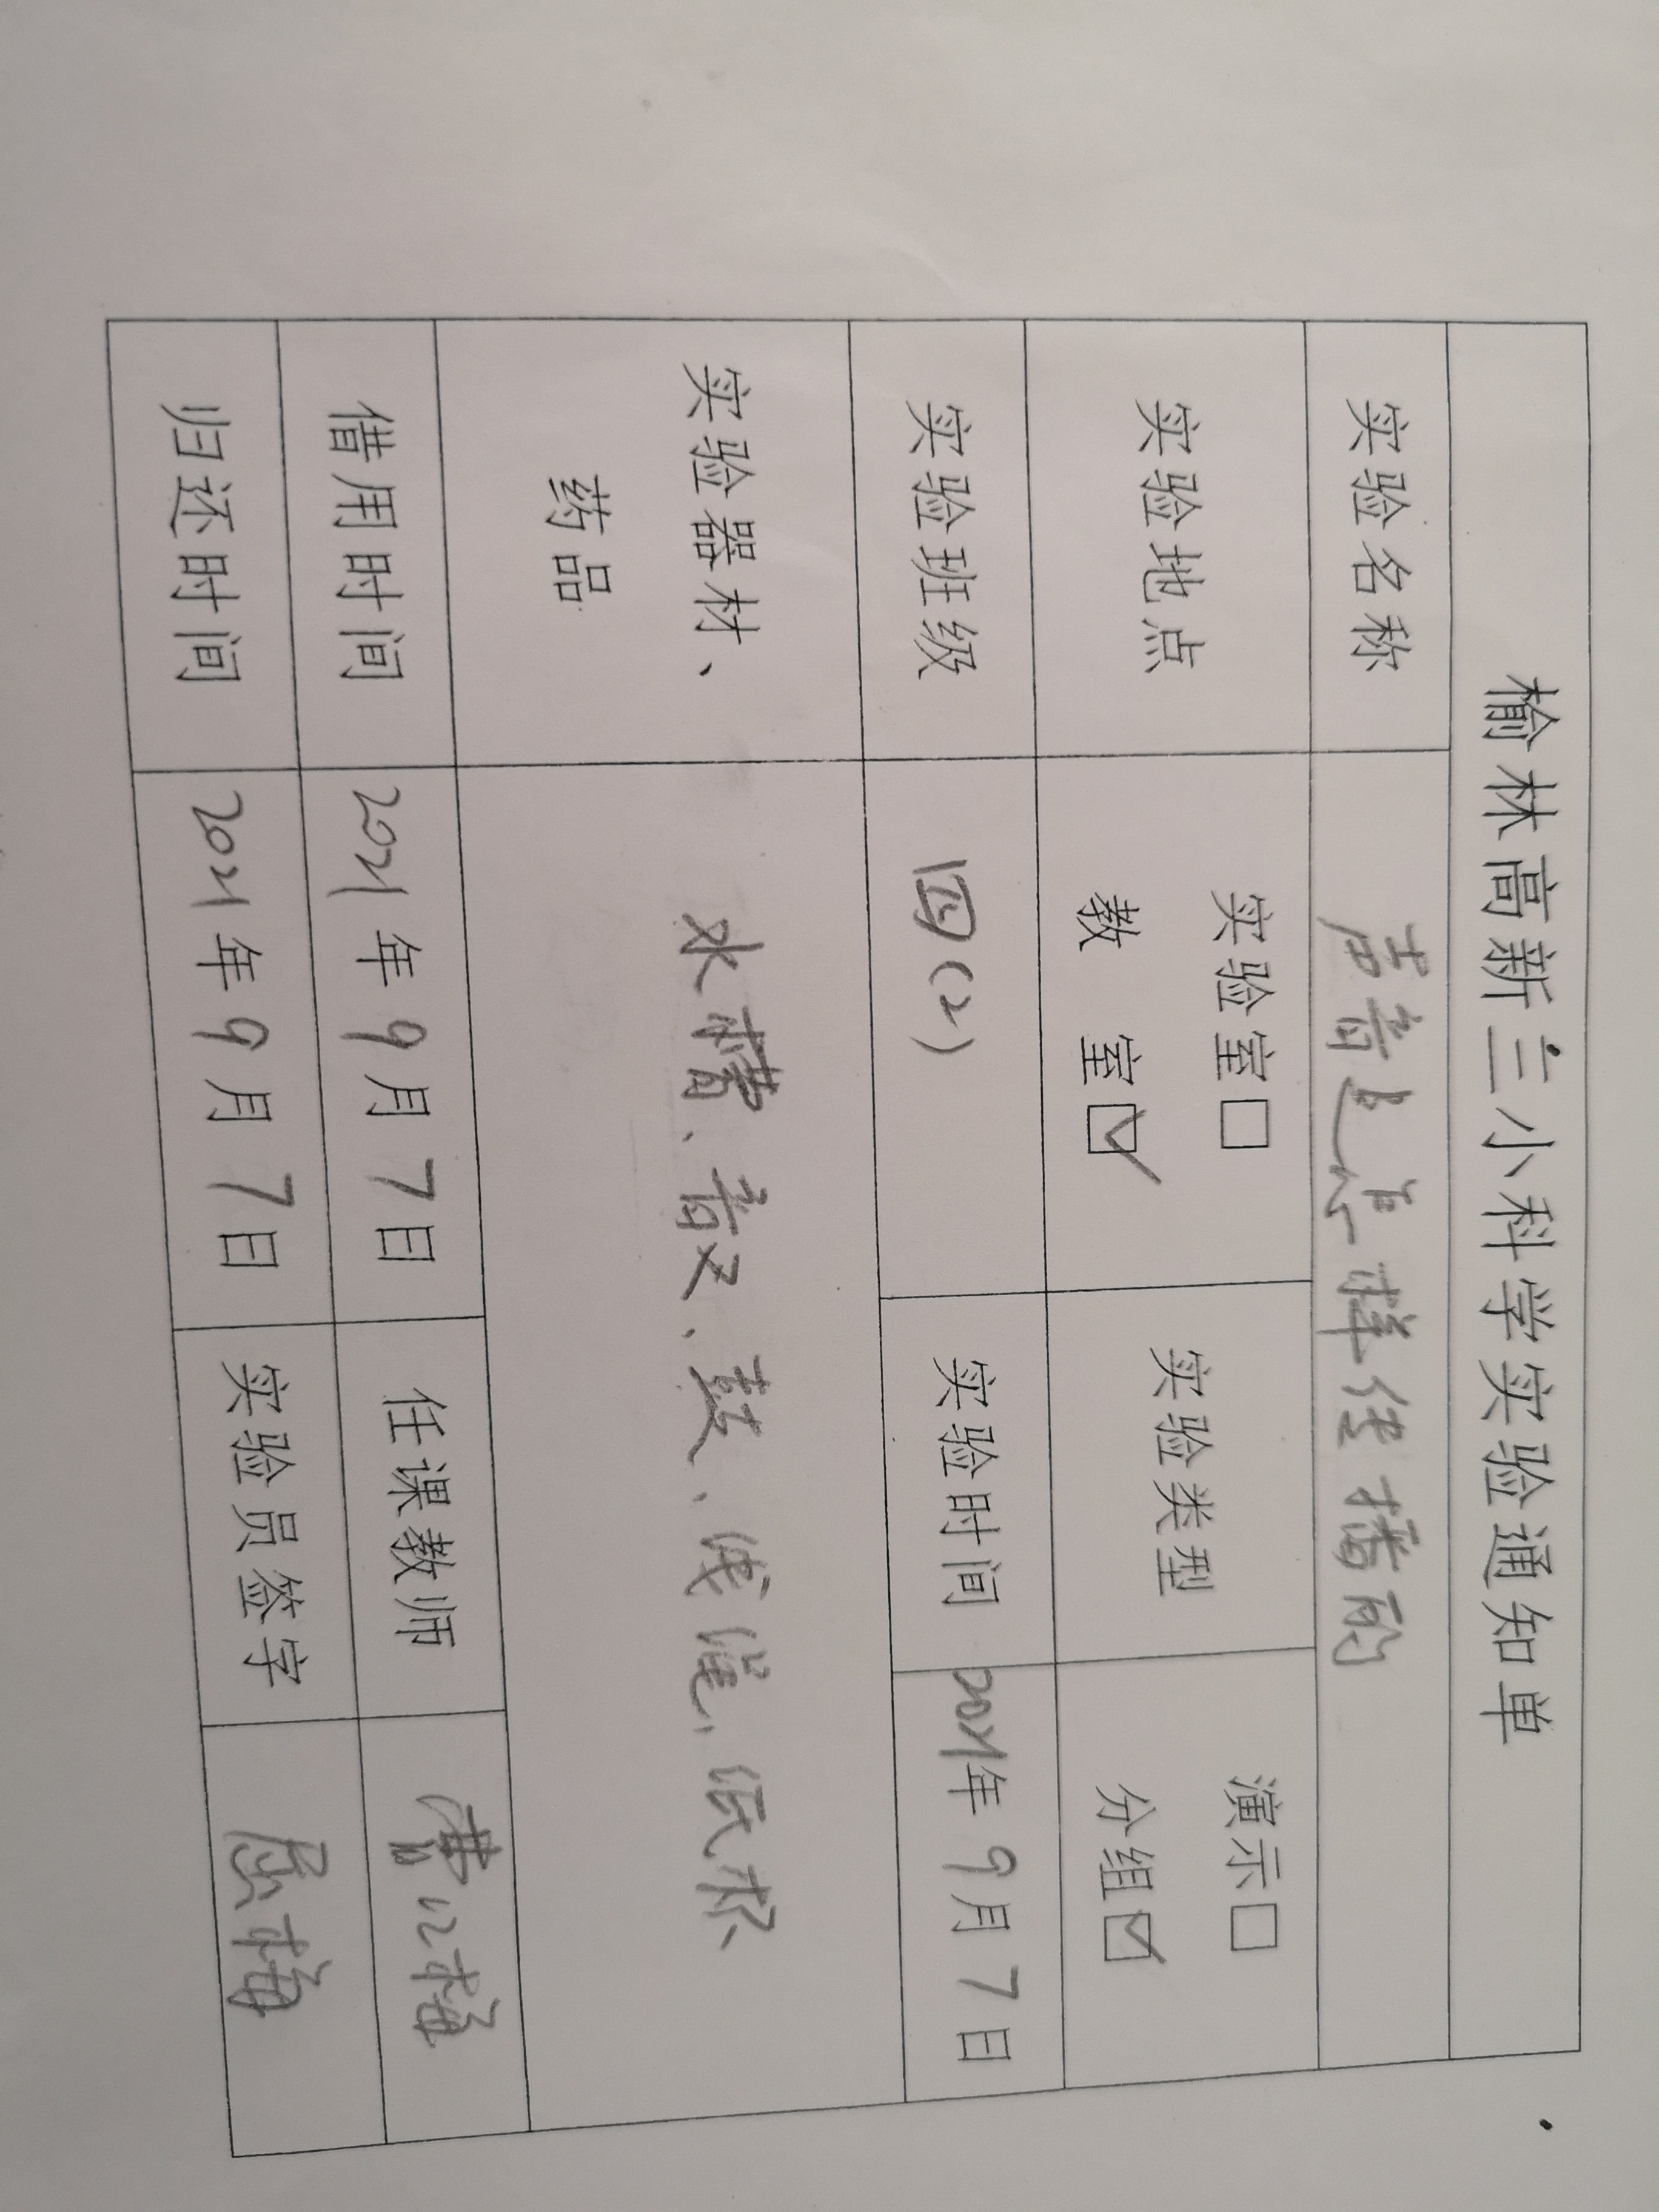 榆林高新三小科学实验通知单
实验名称 声音是怎样传播的
实验地点 实验室□ 教 室☑ 实验类型 演示□ 分组☑
实验班级 四(2) 实验时间 2021年9月7日
实验器材、药品 水槽、音叉、鼓、线绳、纸杯
借用时间 2021年9月7日 任课教师
归还时间 2021年9月7日 实验员签字